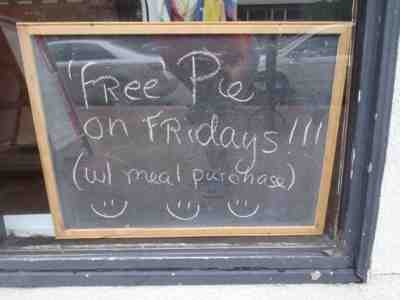 'FREE' Pie
on FRidays!!!
(w/ meal purchase)